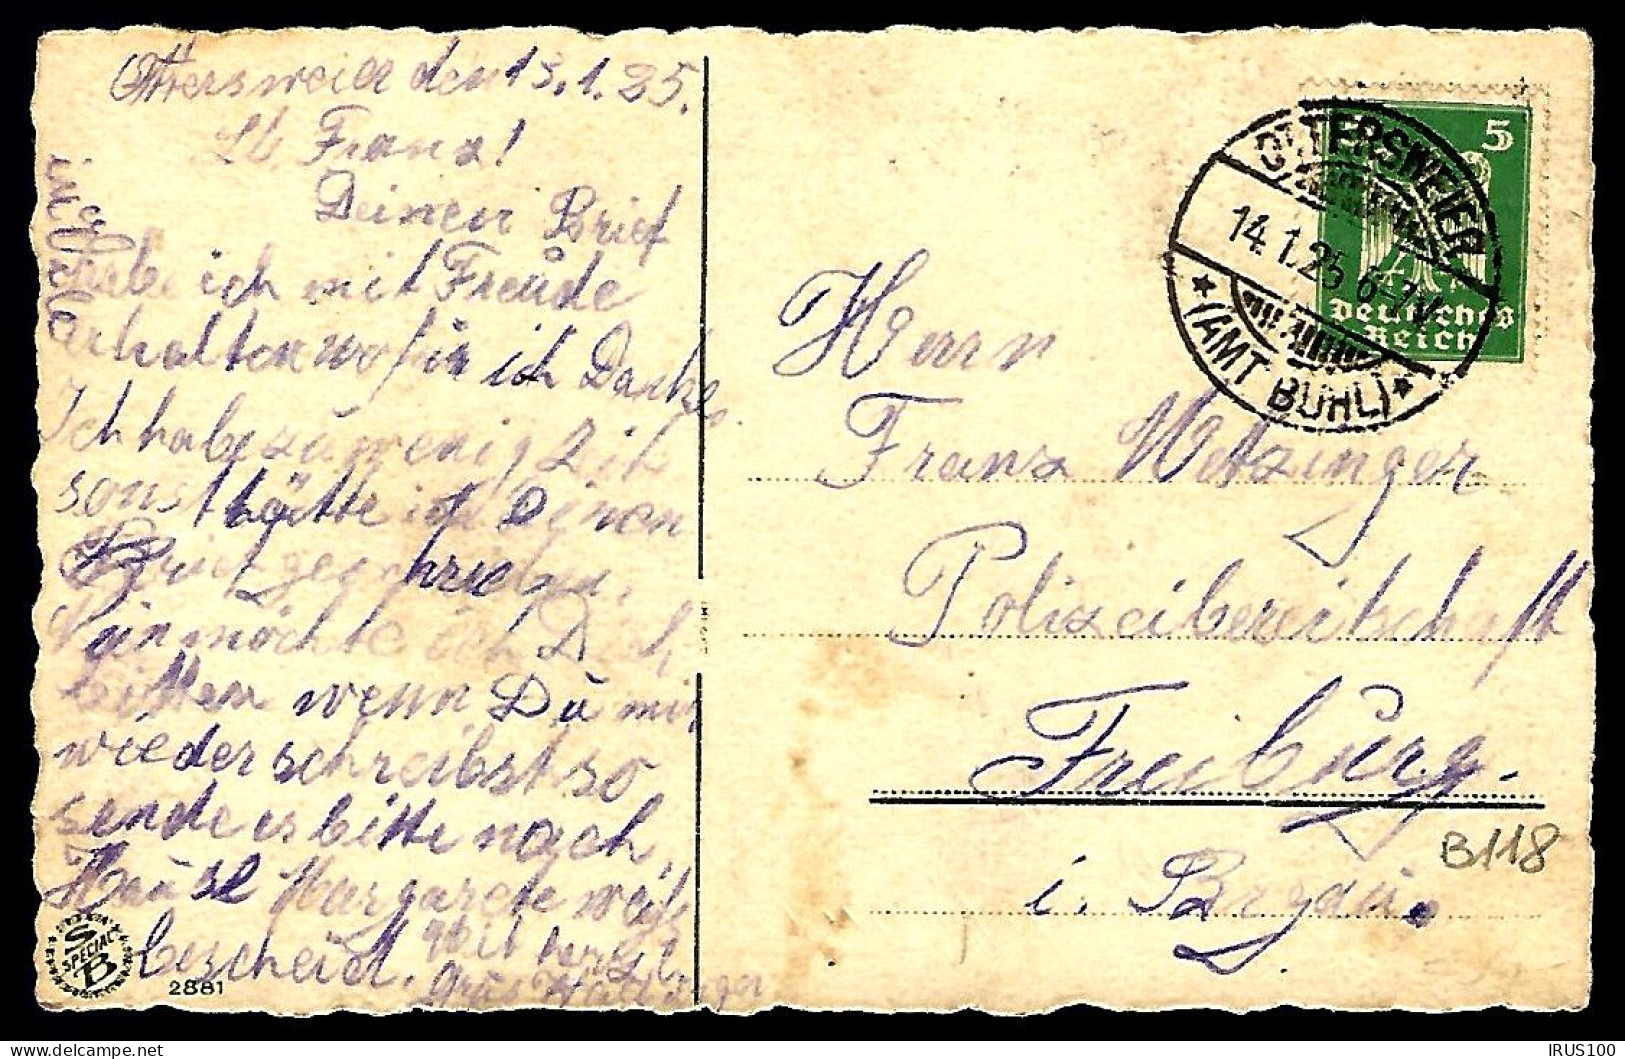 Ottersweier den 13.1.25.
Lb Franz!
Deinen Brief
habe ich mit Freude
erhalten wofür ich Danke.
Ich habe zu wenig Zeit
sonst hätte ich Deinen
Brief geschrieben.
Nun möchte ich Dich
bitten wenn Du mir
wieder schreibst so
sende es bitte nach
Hause Margarete weiß
bescheid. Mit herzl
Gruß
5
OTTERSWEIER
14.1.25 6-7N
(AMT BÜHL)
Deutsches
Reich
Herrn
Franz Metzinger
Polizeibereitschaft
Freiburg.
i. Brgau.
B118
S
SPECIAL
B
2881
IRUS100